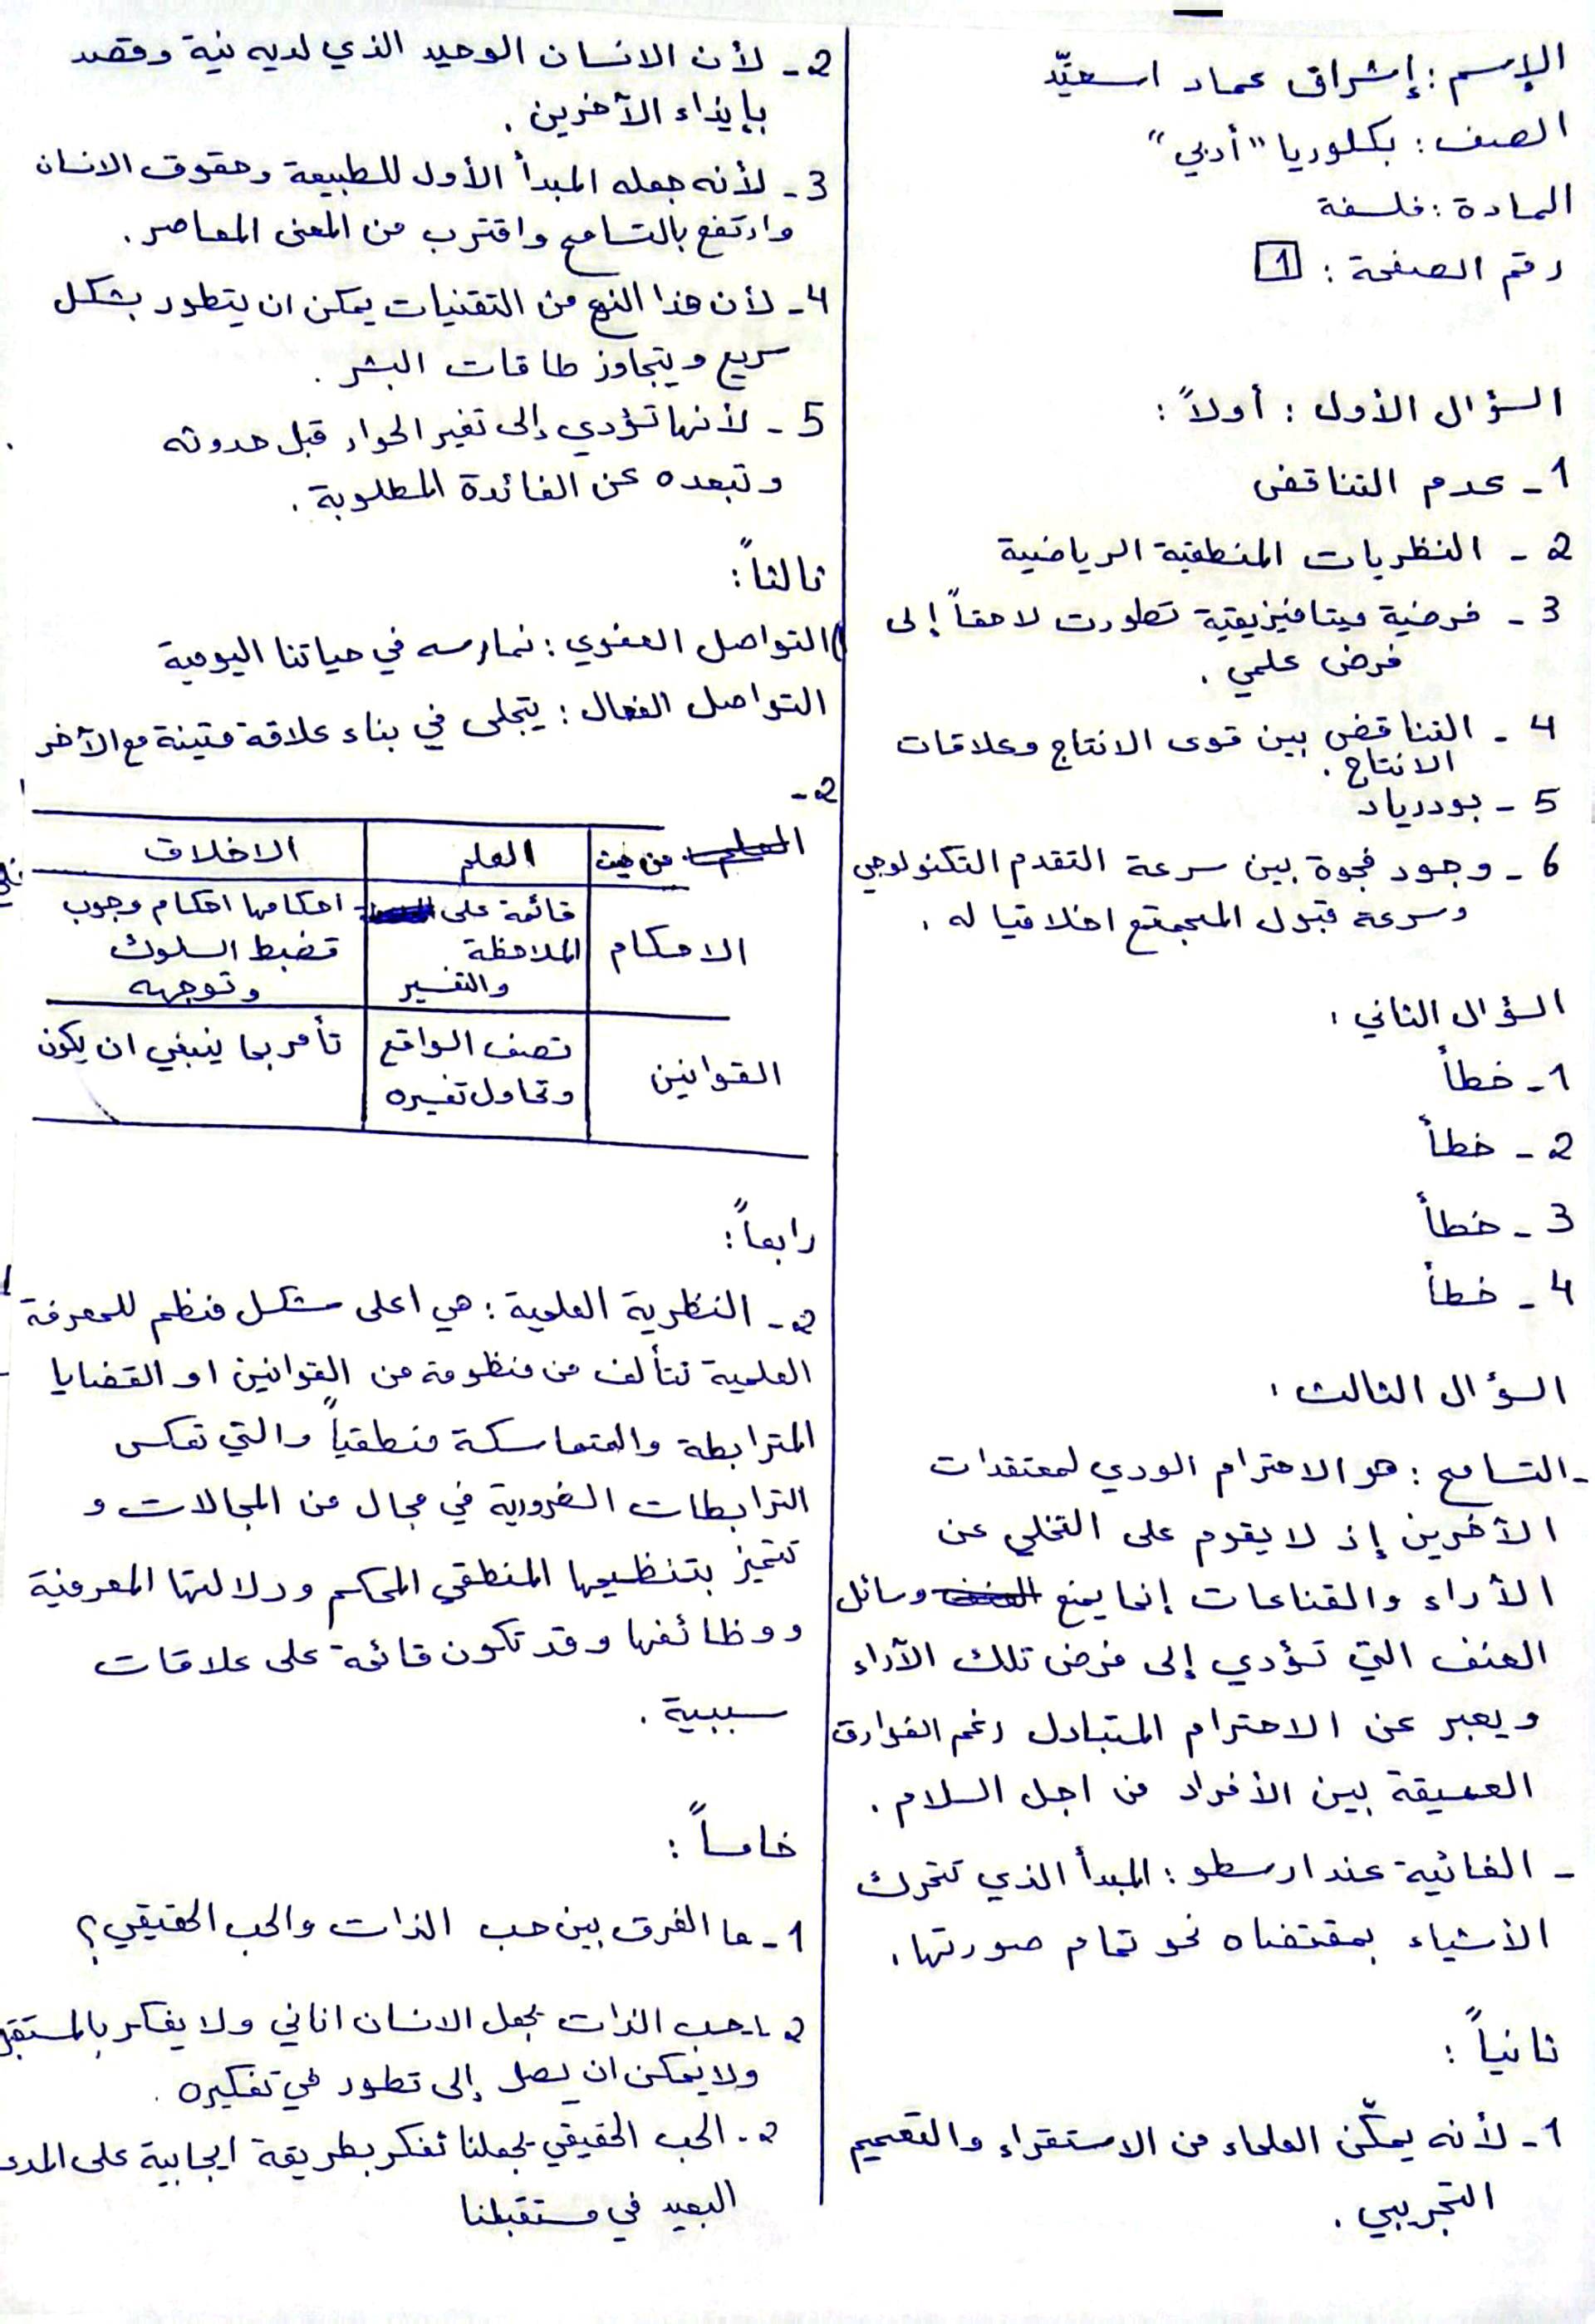 الإسم : إشراق عماد اسعيّد
الصف : بكلوريا "أدبي"
المادة : فلسفة
رقم الصفحة : 1
السؤال الأول : أولاً :
1 - عدم التناقض
2 - النظريات المنطقية الرياضية
3 - فرضية ميتافيزيقية تطورت لاحقاً إلى
فرض علمي .
4 - التناقض بين قوى الانتاج وعلاقات
الانتاج .
5 - بودريار
6 - وجود فجوة بين سرعة التقدم التكنولوجي
وسرعة قبول المجمتع اخلاقيا له .
السؤال الثاني :
1 - خطأ
2 - خطأ
3 - خطأ
4 - خطأ
السؤال الثالث :
- التسامح : هو الاحترام الودي لمعتقدات
الآخرين إذ لا يقوم على التخلي عن
الأراء والقناعات إنما يمنع وسائل
العنف التي تؤدي إلى فرض تلك الآراء
ويعبر عن الاحترام المتبادل رغم الفوارق
العميقة بين الأفراد من اجل السلام .
- الغائية عند ارسطو : المبدأ الذي تتحرك
الأشياء بمقتضاه نحو تمام صورتها .
ثانياً :
1 - لأنه يمكّن العلماء من الاستقراء والتعميم
التجريبي .
2 - لأن الانسان الوحيد الذي لديه نية وقصد
بإيذاء الآخرين .
3 - لأنه جعله المبدأ الأول للطبيعة وحقوق الانسان
وارتفع بالتسامح واقترب من المعنى المعاصر .
4 - لأن هذا النهج من التقنيات يمكن ان يتطور بشكل
سريع ويتجاوز طاقات البشر .
5 - لأنها تؤدي إلى تغير الحوار قبل حدوثه
وتبعده عن الفائدة المطلوبة .
ثالثاً :
التواصل العفوي : نمارسه في حياتنا اليومية
التواصل الفعال : يتجلى في بناء علاقة متينة مع الآخر
2 -
من حيث العلم الاخلاق
الاحكام قائمة على الملاحظة والتفسير احكامها احكام وجوب تضبط السلوك وتوجهه
القوانين تصف الواقع وتحاول تفسيره تأمر بما ينبغي ان يكون
رابعاً :
2 - النظرية العلمية : هي اعلى شكل منظم للمعرفة
العلمية تتألف من منظومة من القوانين او القضايا
المترابطة والمتماسكة منطقياً والتي تعكس
الترابطات الضرورية في مجال من المجالات و
تتميز بتنظيمها المنطقي المحكم ودلالتها المعرفية
ووظائفها وقد تكون قائمة على علاقات
سببية .
خامساً :
1 - ما الفرق بين حب الذات والحب الحقيقي ؟
2 1. حب الذات يجعل الانسان اناني ولا يفكر بالمستقبل
ولا يمكن ان يصل إلى تطور في تفكيره .
2. الحب الحقيقي يجعلنا نفكر بطريقة ايجابية على المدى
البعيد في مستقبلنا